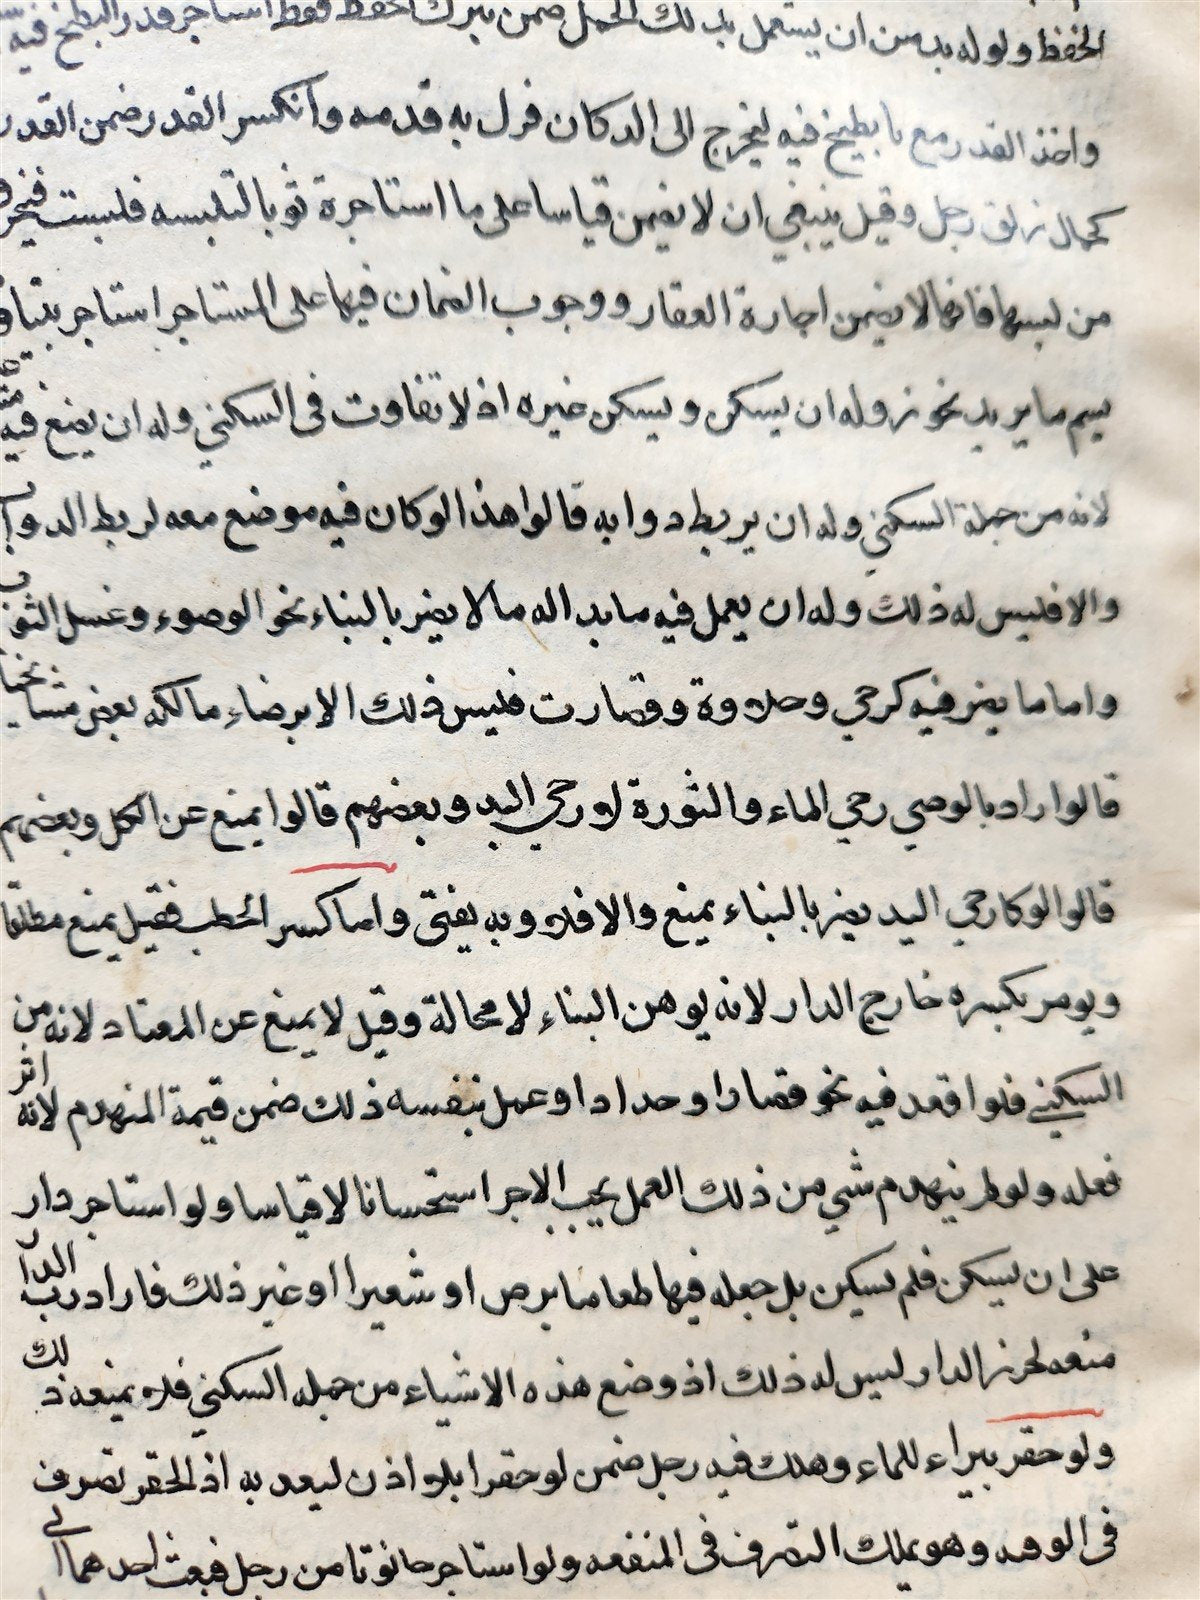 الحفظ ولو له بد من ان يستعمل بذلك الحمل ضمن بترك الحفظ فقط استاجر قدر البطيخ فيه
واخذ القدر مع ما يطبخ فيه ليخرج الى الدكان فزل به قدمه وانكسر القدر ضمن القدر
كحمال زلق رجل وقيل ينبغي ان لا يضمن قياسا على ما استاجرة ثوبا لتلبسه فلبست فتخرق
من لبسها فانها لا يضمن اجارة العقار ووجوب الضمان فيها على المستاجر استاجر بيتا و
يسم ما يريد نحو زوله ان يسكن ويسكن غيره اذ لا تفاوت فى السكني وله ان يضع فيه
لانه من جملة السكني وله ان يربط دوابه قالوا هذا لوكان فيه موضع معه لربط الدواب
والا فليس له ذلك وله ان يعمل فيه ما بداله مما لا يضر بالبناء نحو الوضوء وغسل الثوب
واما ما يضر فيه كرحي وحلاوة وقصارت فليس ذلك الا برضاء مالكه بعض مشايخنا
قالوا راد بالوحي رحي الماء والثورة لا رحي اليد وبعضهم قالوا يمنع عن الكل وبعضهم
قالوا لوكا رحي اليد يضر بالبناء يمنع والا فلا وبه يفتى واما كسر الحطب فقيل يمنع مطلقا
ويومر بكسره خارج الدار لانه يوهن البناء لا محالة وقيل لا يمنع عن المعتاد لانه من
السكني فلو اقعد فيه نحو قصارا وحدادا وعمل بنفسه ذلك ضمن قيمة المنهدم لانه اثر
فعله ولو لم ينهدم شي من ذلك العمل يجب الاجر استحسانا لا قياسا ولو استاجر دار
على ان يسكن فلم يسكن بل جعله فيها طعاما برص او شعيرا او غير ذلك فاراد رب الدار
منعه لحرز الدار ليس له ذلك اذ وضع هذه الاشياء من جمله السكني فلا يمنعه ذلك
ولو حقر بيراء للماء وهلك فيه رجل ضمن لو حقرا بلا اذن ليعد به اذ الحقر تصرف
فى الوهد وهو يملك التصرف فى المنفعه ولو استاجر حانوتا من رجل فبعث احدهما الى